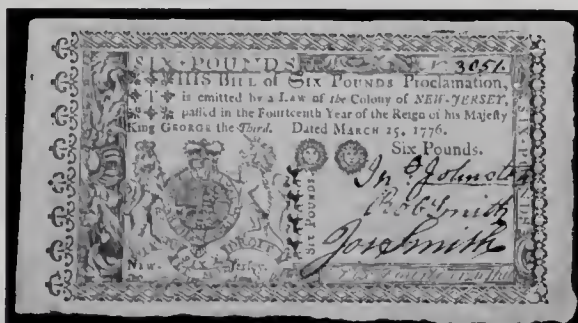 SIX POUNDS. No. 3051.
THIS BILL of SIX POUNDS Proclamation,
is emitted by a Law of the Colony of NEW-JERSEY,
passed in the Fourteenth Year of the Reign of his Majesty
King GEORGE the Third. Dated MARCH 25, 1776.
Six Pounds.
Jno Johnston
Rob Smith
Jos Smith
SIX POUNDS
SIX POUNDS
New- Jersey.